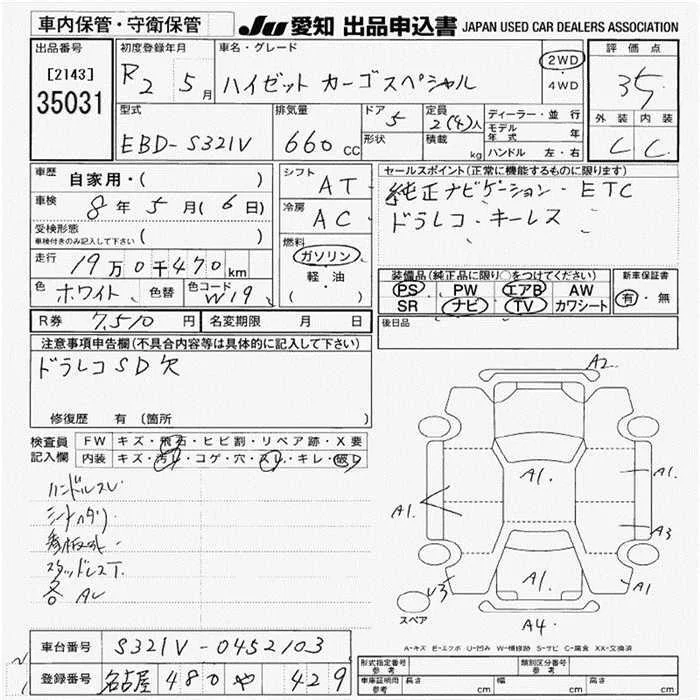 車内保管・守衛保管 JU 愛知 出品申込書 JAPAN USED CAR DEALERS ASSOCIATION
出品番号 [2143] 35031
初度登録年月 R2 5月
車名・グレード ハイゼット カーゴスペシャル
2WD ・ 4WD
評価点 35
外装 内装
C C
型式 EBD-S321V
排気量 660 cc
ドア 5 形状
定員 2(4)人 積載 kg
ディーラー・並行
モデル年式 年
ハンドル 左・右
車歴 自家用・( )
車検 8年 5月(6日)
受検形態 ( )
車検付きのみ記入して下さい
走行 19万0千470km
色 ホワイト 色替 色コード W19
シフト AT
冷房 AC
燃料 ガソリン
軽・油
( )
セールスポイント(正常に機能するものに限ります)
純正ナビゲーション・ETC
ドラレコ・キーレス
装備品(純正品に限り○をつけてください)
PS PW エアB AW
SR ナビ TV カワシート
新車保証書
有・無
R券 7,510円 名変期限 月 日
後日品
注意事項申告欄(不具合内容等は具体的に記入して下さい)
ドラレコSD欠
修復歴 有(箇所
検査員記入欄
FW キズ・飛石・ヒビ割・リペア跡・X要
内装 キズ・汚レ・コゲ・穴・スレ・キレ・破レ
ハンドルスレ
シートハタリ
スタッドレスT.
A2
A1.
A1.
A1.
A3
A1.
A1
A4
スペア
A-キズ E-エクボ U-凹み W-補修跡 S-サビ C-腐食 XX-交換済
車台番号 S321V-0452103
登録番号 名古屋 480 や 429
形式指定番号 参考
類別区分番号 参考
車庫証明用 参考 長さ cm 幅 cm 高さ cm